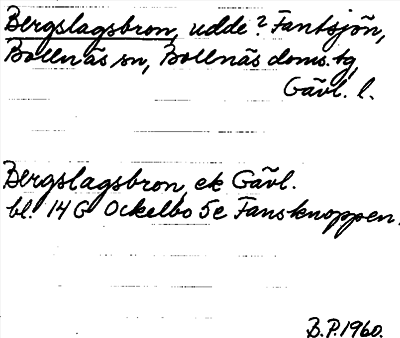 Bergslagsbron, udde? Fantsjön,
Bollnäs sn, Bollnäs doms. tg,
Gävl. l.
Bergslagsbron, ek Gävl.
bl. 14 G Ockelbo 5e Fansknoppen.
B.P. 1960.